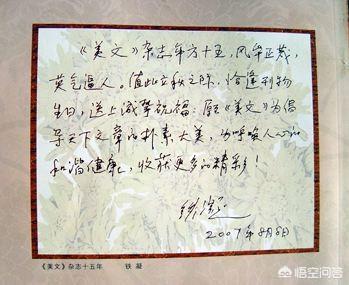 《美文》杂志年方十五，风华正茂，
英气逼人。值此立秋之际，恰逢刊物
生日，送上诚挚祝福：愿《美文》为倡
导天下文章的朴素大美，为呼唤人心的
和谐健康，收获更多的精彩！
铁凝
2007年8月8日
《美文》杂志十五年 铁 凝
悟空问答